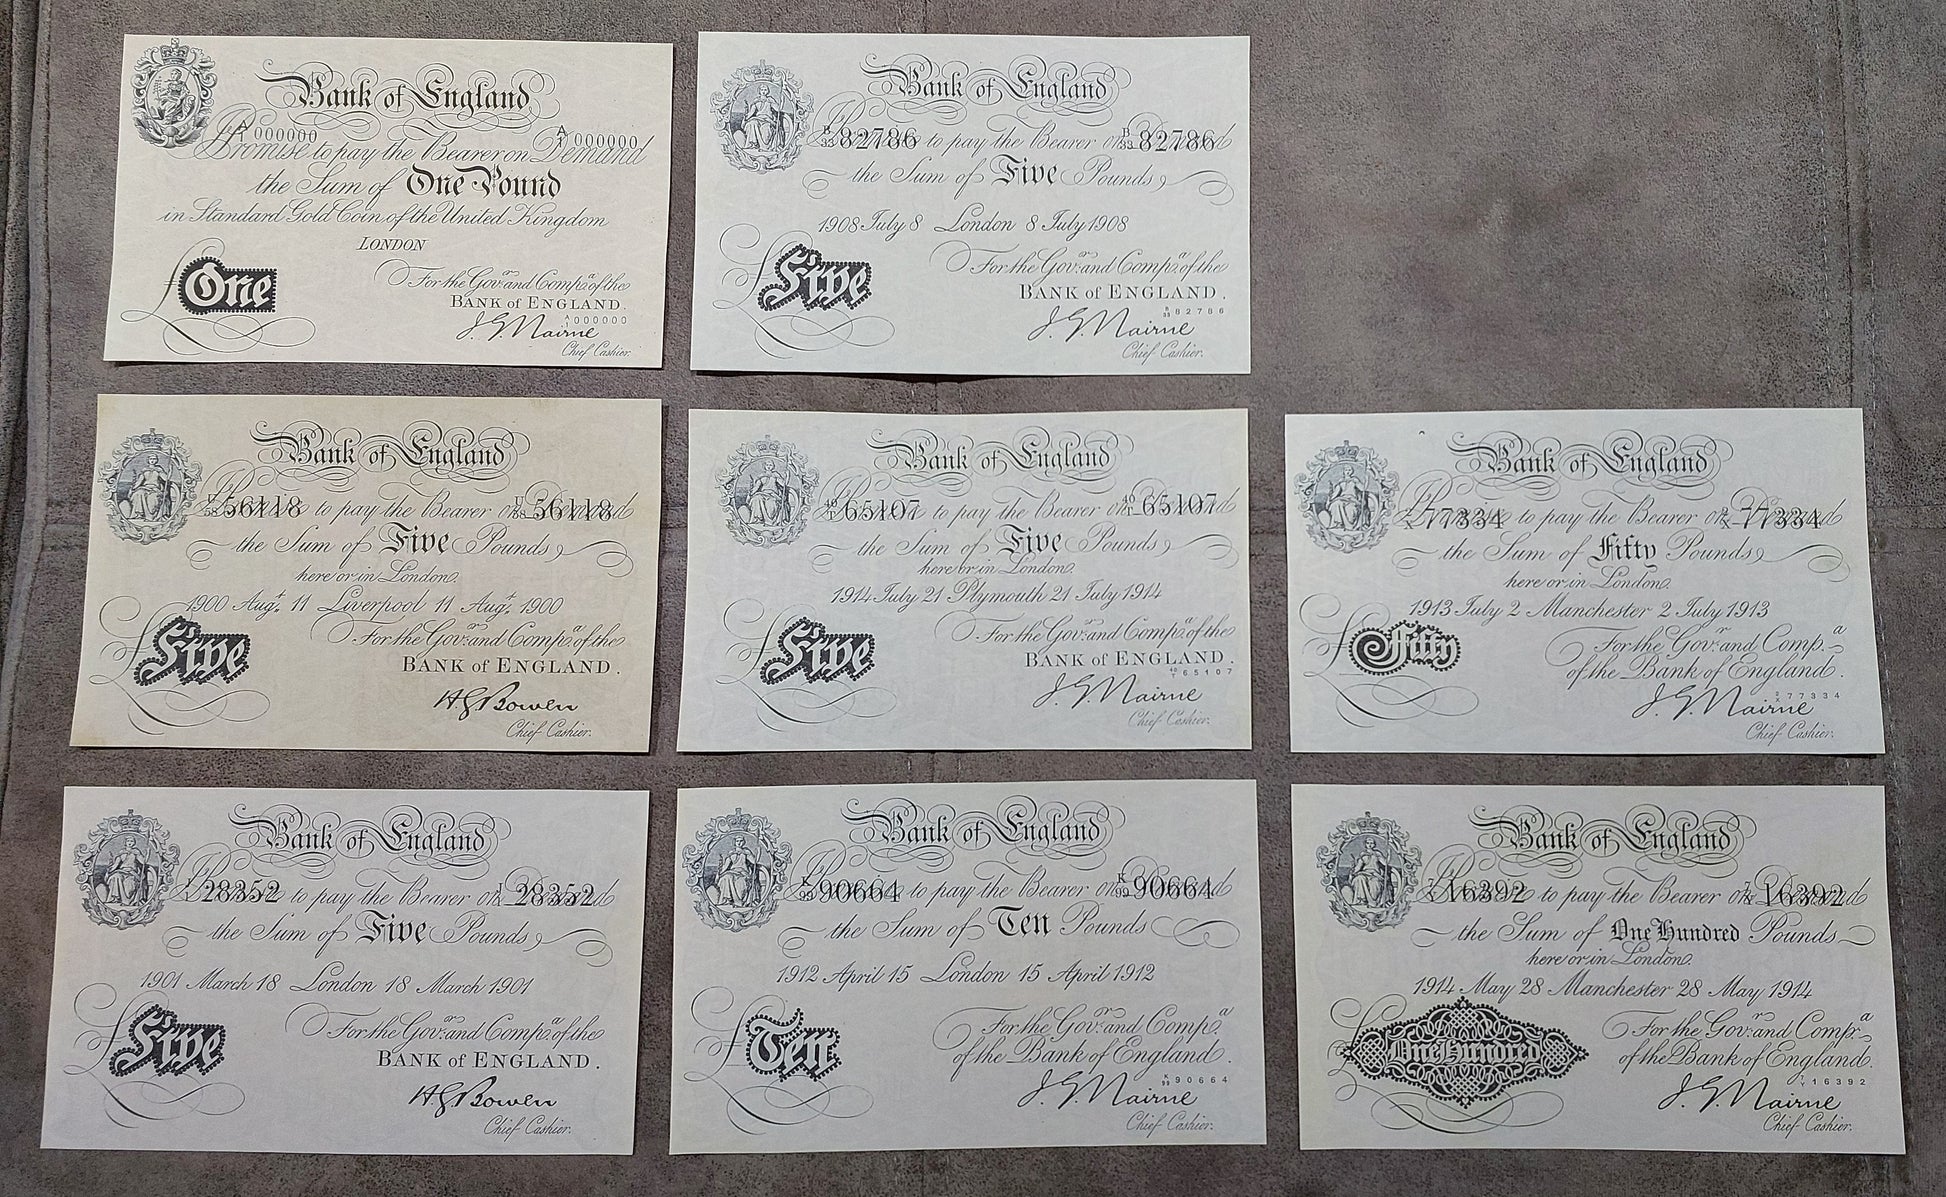 Bank of England
A 000000 A 000000
1
Promise to pay the Bearer on Demand
the Sum of One Pound
in Standard Gold Coin of the United Kingdom
LONDON
£ One
For the Govr. and Compa. of the
BANK of ENGLAND.
A 000000
J. G. Nairne
Chief Cashier.
Bank of England
82786 to pay the Bearer on 82786
the Sum of Five Pounds
1908 July 8 London 8 July 1908
£ Five
For the Govr. and Compa. of the
BANK of ENGLAND.
82786
J. G. Nairne
Chief Cashier.
Bank of England
56118 to pay the Bearer on 56118
the Sum of Five Pounds
here or in London.
1900 Augt. 11 Liverpool 11 Augt. 1900
£ Five
For the Govr. and Compa. of the
BANK of ENGLAND.
H G Bowen
Chief Cashier.
Bank of England
65107 to pay the Bearer on 65107
the Sum of Five Pounds
here or in London.
1914 July 21 Plymouth 21 July 1914
£ Five
For the Govr. and Compa. of the
BANK of ENGLAND.
65107
J. G. Nairne
Chief Cashier.
Bank of England
77334 to pay the Bearer on 77334
the Sum of Fifty Pounds
here or in London.
1913 July 2 Manchester 2 July 1913
£ Fifty
For the Govr. and Compa.
of the Bank of England.
77334
J. G. Nairne
Chief Cashier.
Bank of England
28352 to pay the Bearer on 28352
the Sum of Five Pounds
1901 March 18 London 18 March 1901
£ Five
For the Govr. and Compa. of the
BANK of ENGLAND.
H G Bowen
Chief Cashier.
Bank of England
K 99 90664 to pay the Bearer on K 99 90664
the Sum of Ten Pounds
1912 April 15 London 15 April 1912
£ Ten
For the Govr. and Compa.
of the Bank of England.
K 99 90664
J. G. Nairne
Chief Cashier.
Bank of England
16392 to pay the Bearer on 16392
the Sum of One Hundred Pounds
here or in London.
1914 May 28 Manchester 28 May 1914
£ One Hundred
For the Govr. and Compa.
of the Bank of England.
16392
J. G. Nairne
Chief Cashier.